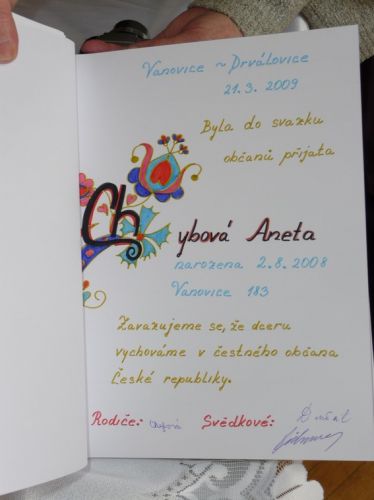 Vanovice ~ Drválovice
21.3. 2009
Byla do svazku
občanů přijata
Chybová Aneta
narozena 2.8.2008
Vanovice 183
Zavazujeme se, že dceru
vychováme v čestného občana
České republiky.
Rodiče: Svědkové: